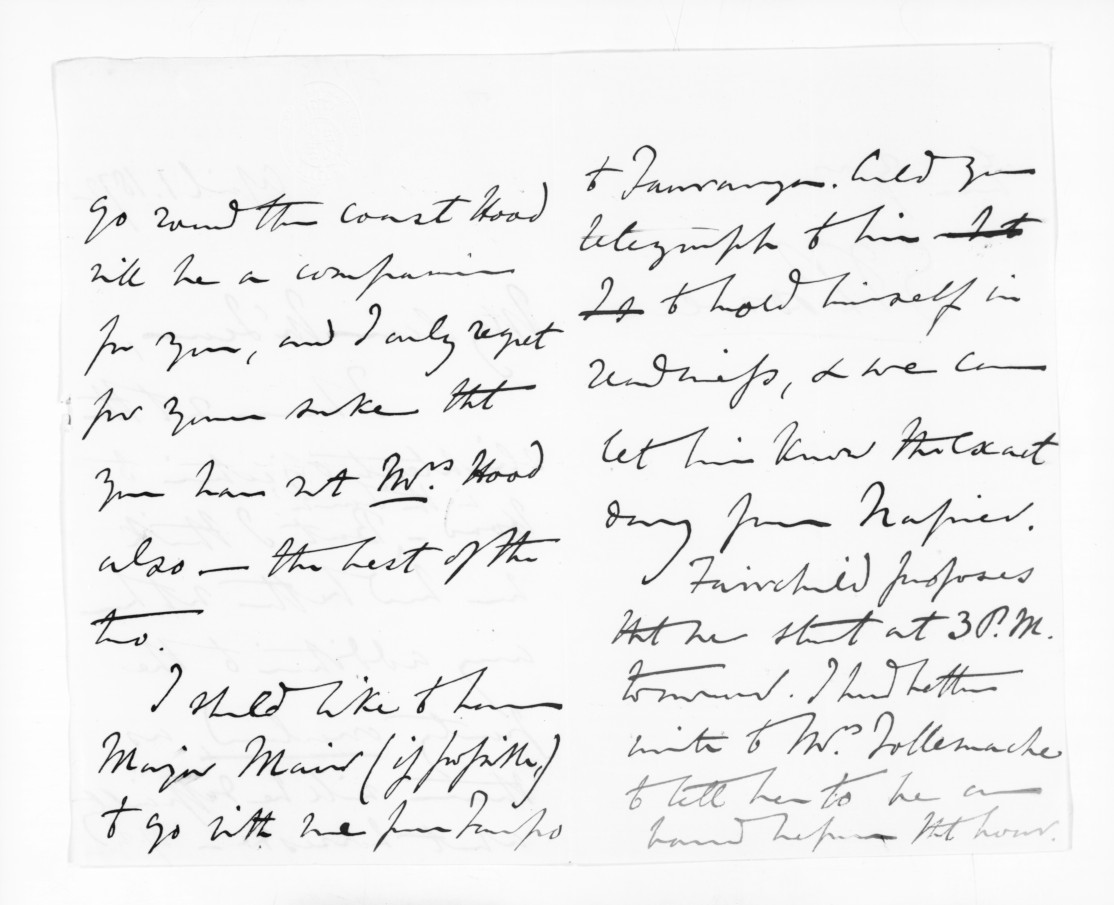 go round the coast Hood
will be a companion
for you, and I only regret
for your sake tht
you have not Mrs. Hood
also — the best of the
two.
I shuld like to have
Major Mair (if possible,)
to go with me from Taupo
to Tauranga. Culd you
telegraph to him
to hold himself in
readiness, & we can
let him know the exact
day from Napier.
Fairchild proposes
tht we start at 3 P.M.
tomorrow. I had better
write to Mrs. Tollemache
to tell her to be on
board before tht hour.